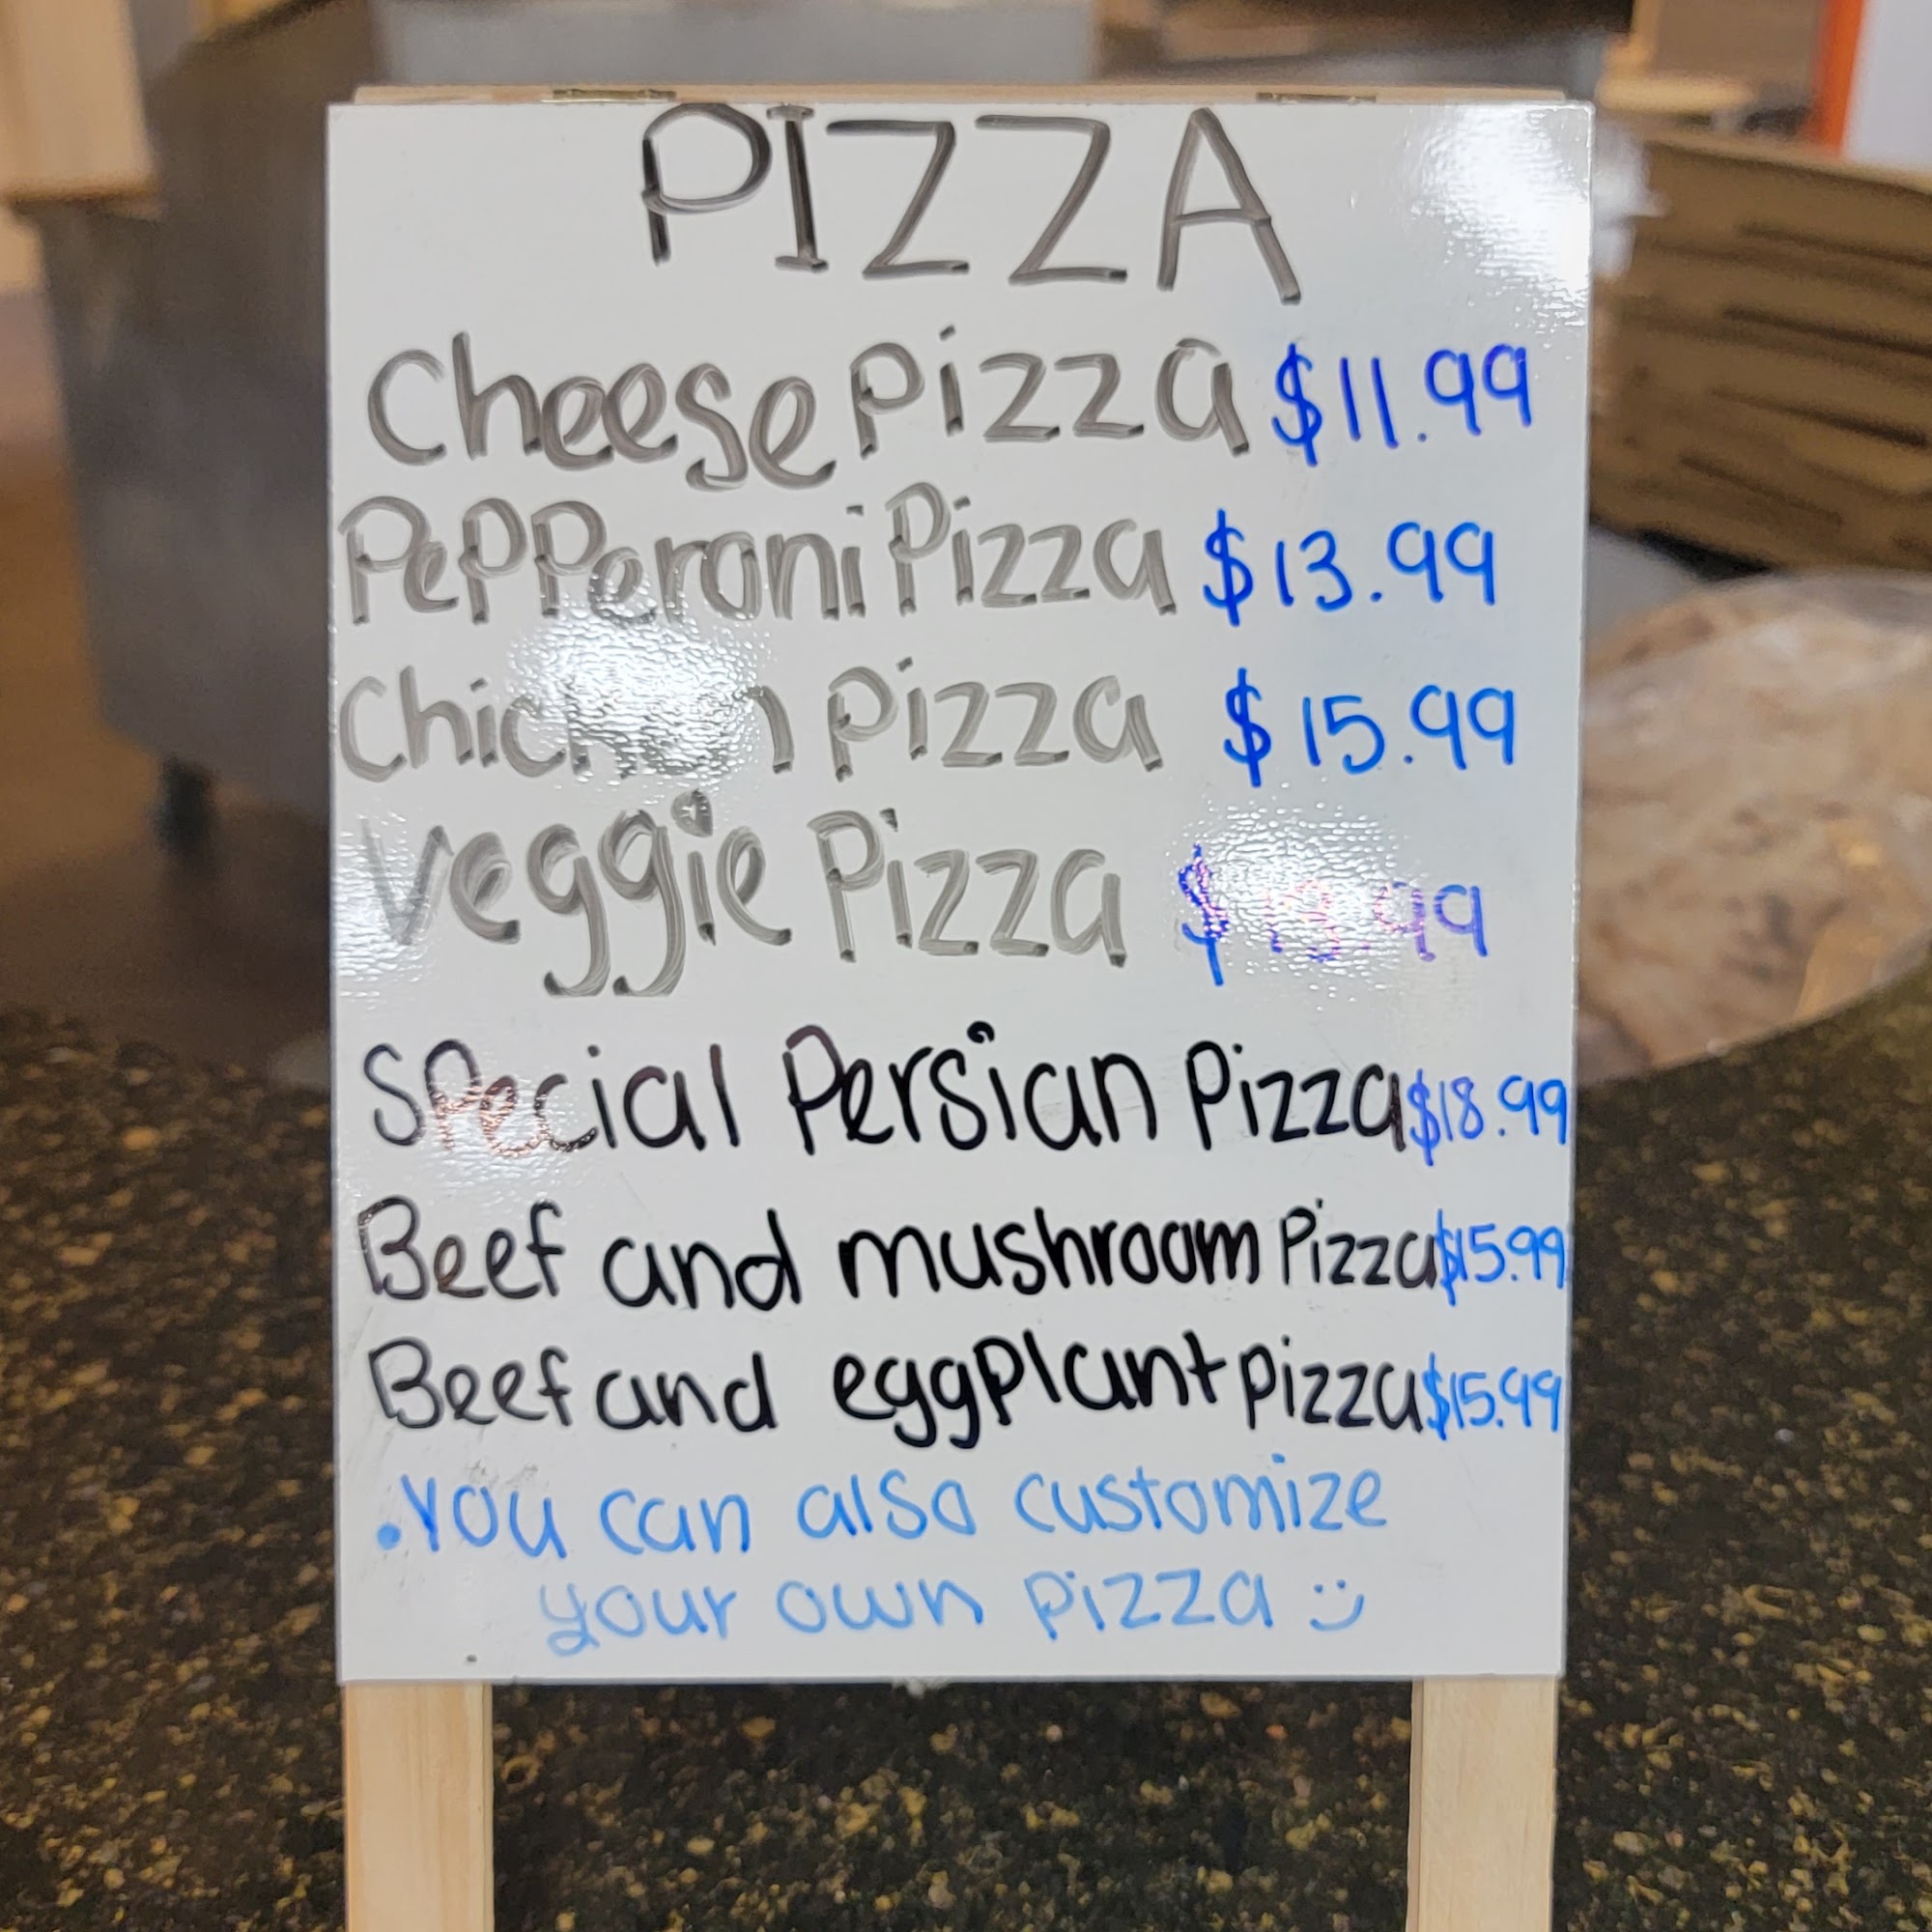 PIZZA
Cheese Pizza $11.99
Pepperoni Pizza $13.99
Chicken Pizza $15.99
Veggie Pizza $13.99
Special Persian Pizza $18.99
Beef and mushroom Pizza $15.99
Beef and eggplant pizza $15.99
• You can also customize
your own pizza :)